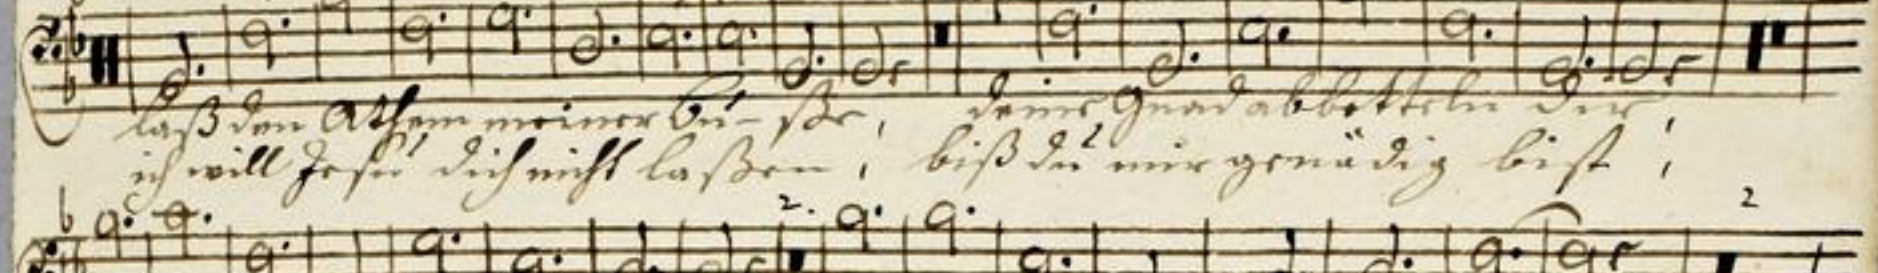 laß den Athem meiner Bu-ße, deine Gnad abbetteln dir,
ich will Jesu dich nicht laßen, biß du mir genädig bist,
2. 2